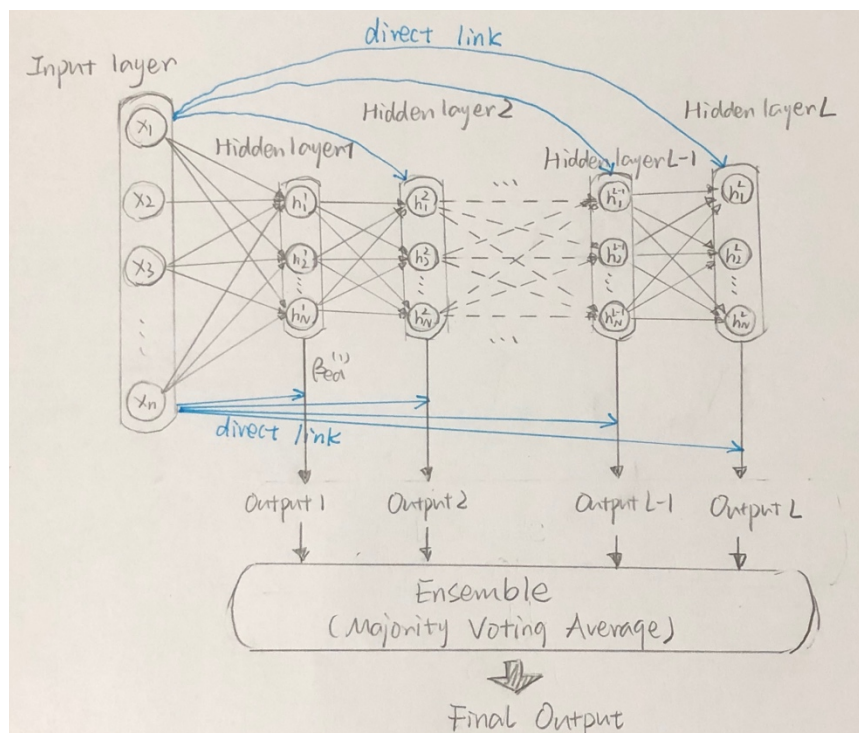 direct link
Input layer
Hidden layer1
Hidden layer2
Hidden layer L-1
Hidden layer L
x1
x2
x3
⋮
xn
h₁¹
h₂¹
⋮
h_N¹
h₁²
h₂²
⋮
h_N²
...
...
h₁ᴸ⁻¹
h₂ᴸ⁻¹
⋮
h_Nᴸ⁻¹
h₁ᴸ
h₂ᴸ
⋮
h_Nᴸ
direct link
Output 1
Output 2
Output L-1
Output L
Ensemble
(Majority Voting Average)
Final Output